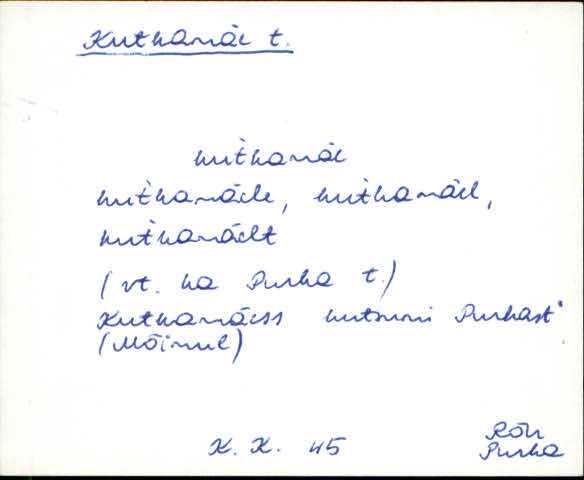 Kutkamäe t.
kutkamäe
kutkamäele, kutkamäel,
kutkamäelt
(vt. ka Purka t.)
Kutkamäess kutsumi Purkast
K. K. 45
Rõu
Purka